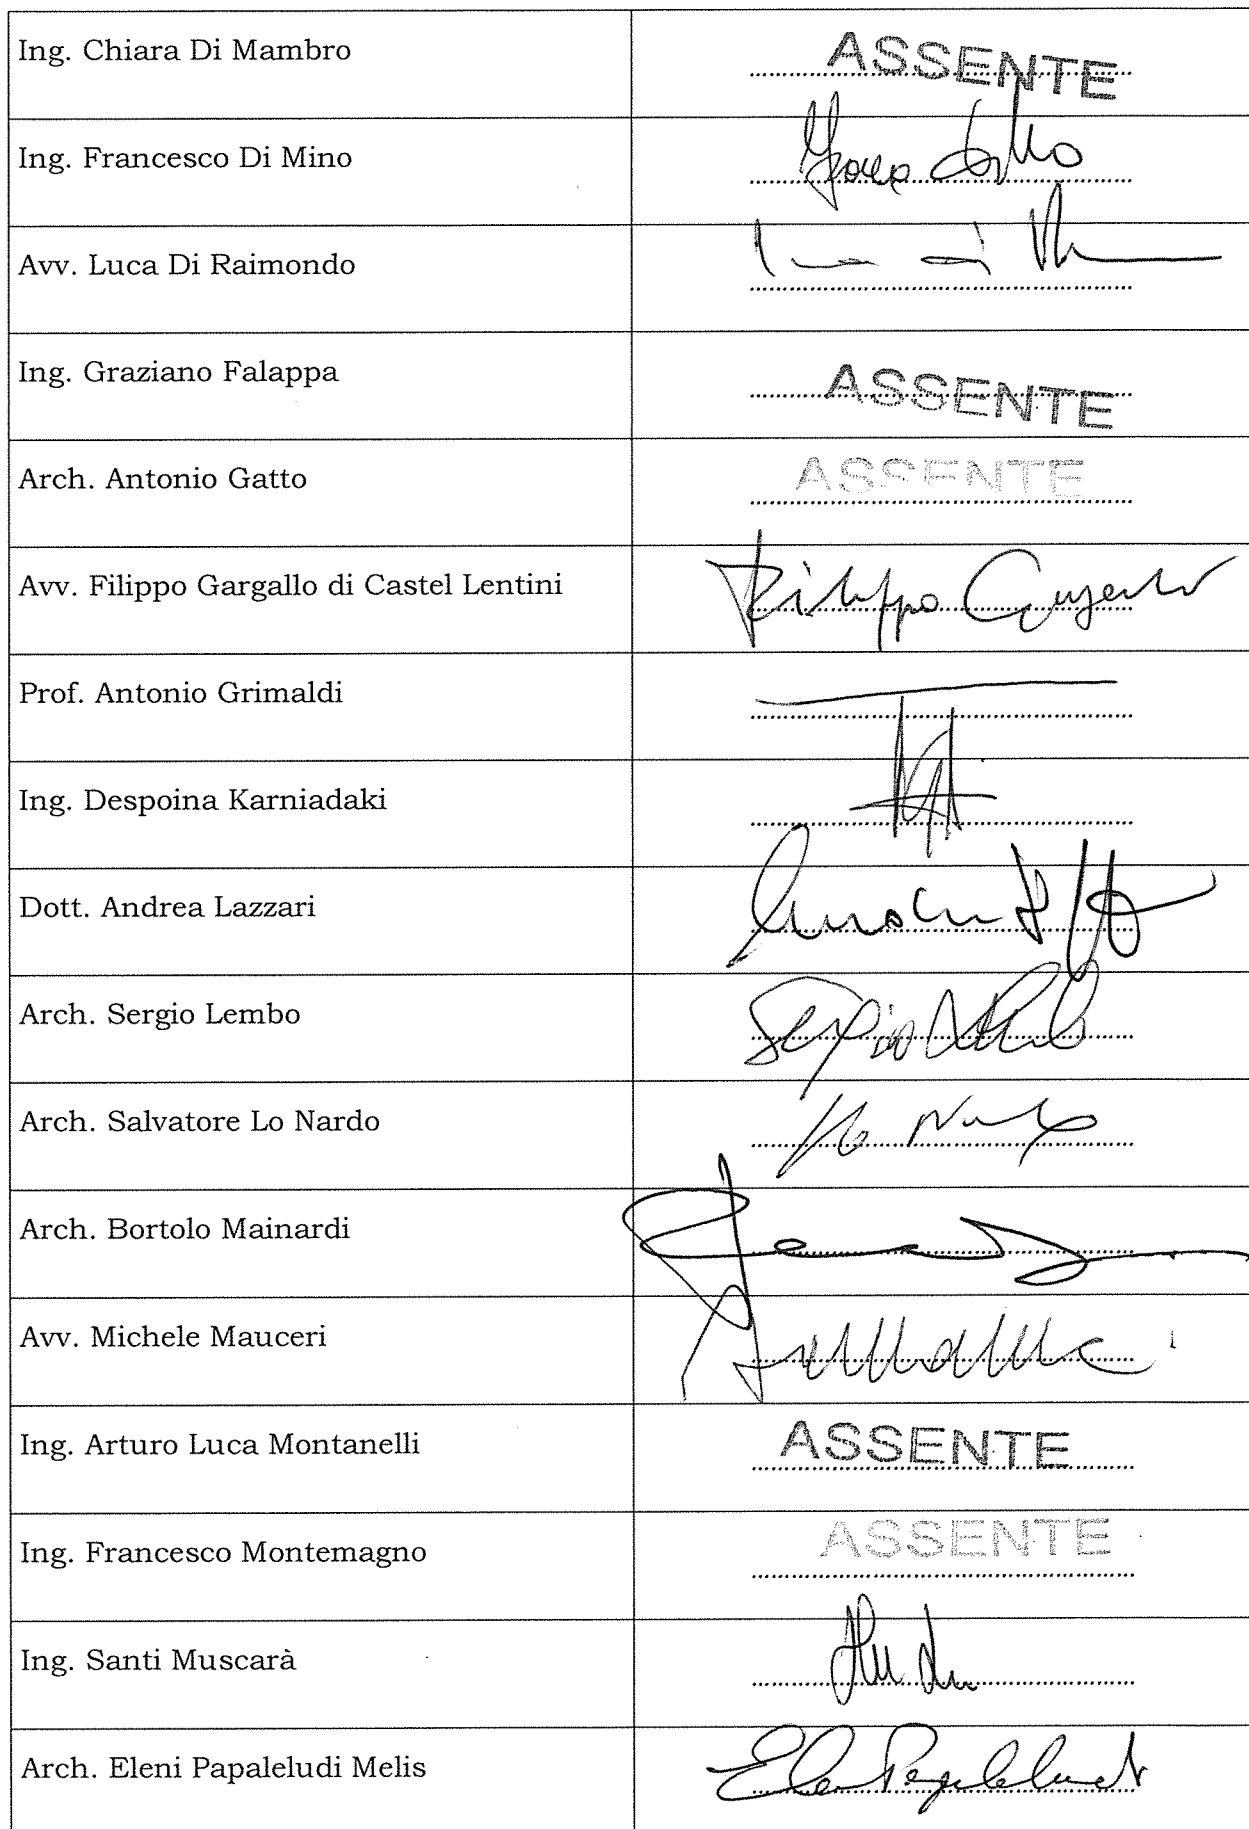 Ing. Chiara Di Mambro ASSENTE
Ing. Francesco Di Mino
Avv. Luca Di Raimondo
Ing. Graziano Falappa ASSENTE
Arch. Antonio Gatto ASSENTE
Avv. Filippo Gargallo di Castel Lentini
Prof. Antonio Grimaldi
Ing. Despoina Karniadaki
Dott. Andrea Lazzari
Arch. Sergio Lembo
Arch. Salvatore Lo Nardo
Arch. Bortolo Mainardi
Avv. Michele Mauceri
Ing. Arturo Luca Montanelli ASSENTE
Ing. Francesco Montemagno ASSENTE
Ing. Santi Muscarà
Arch. Eleni Papaleludi Melis